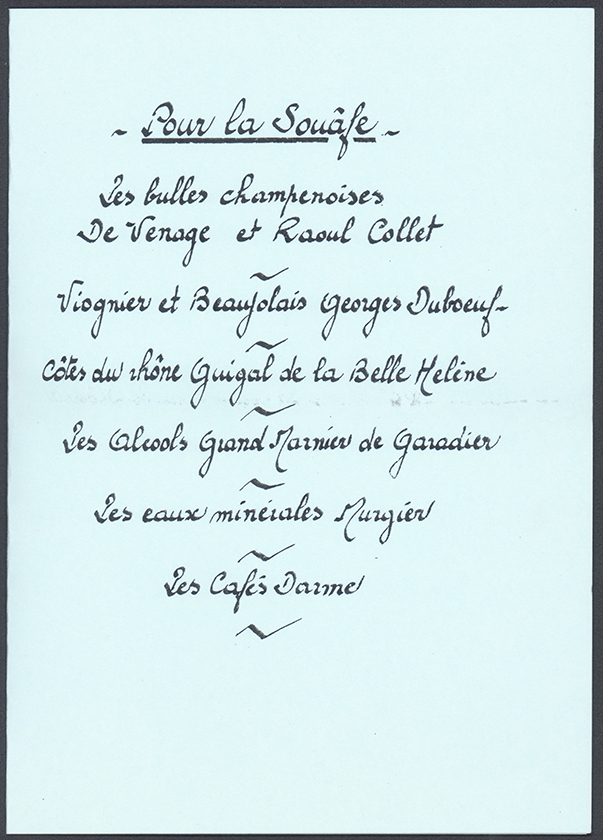 ~ Pour la Souâfe ~
Les bulles champenoises
De Venage et Raoul Collet
Viognier et Beaujolais Georges Duboeuf
Côtes du rhône Guigal de la Belle Helène
Les Alcools Grand Marnier de Garadier
Les eaux minérales Murgier
Les Cafés Darme